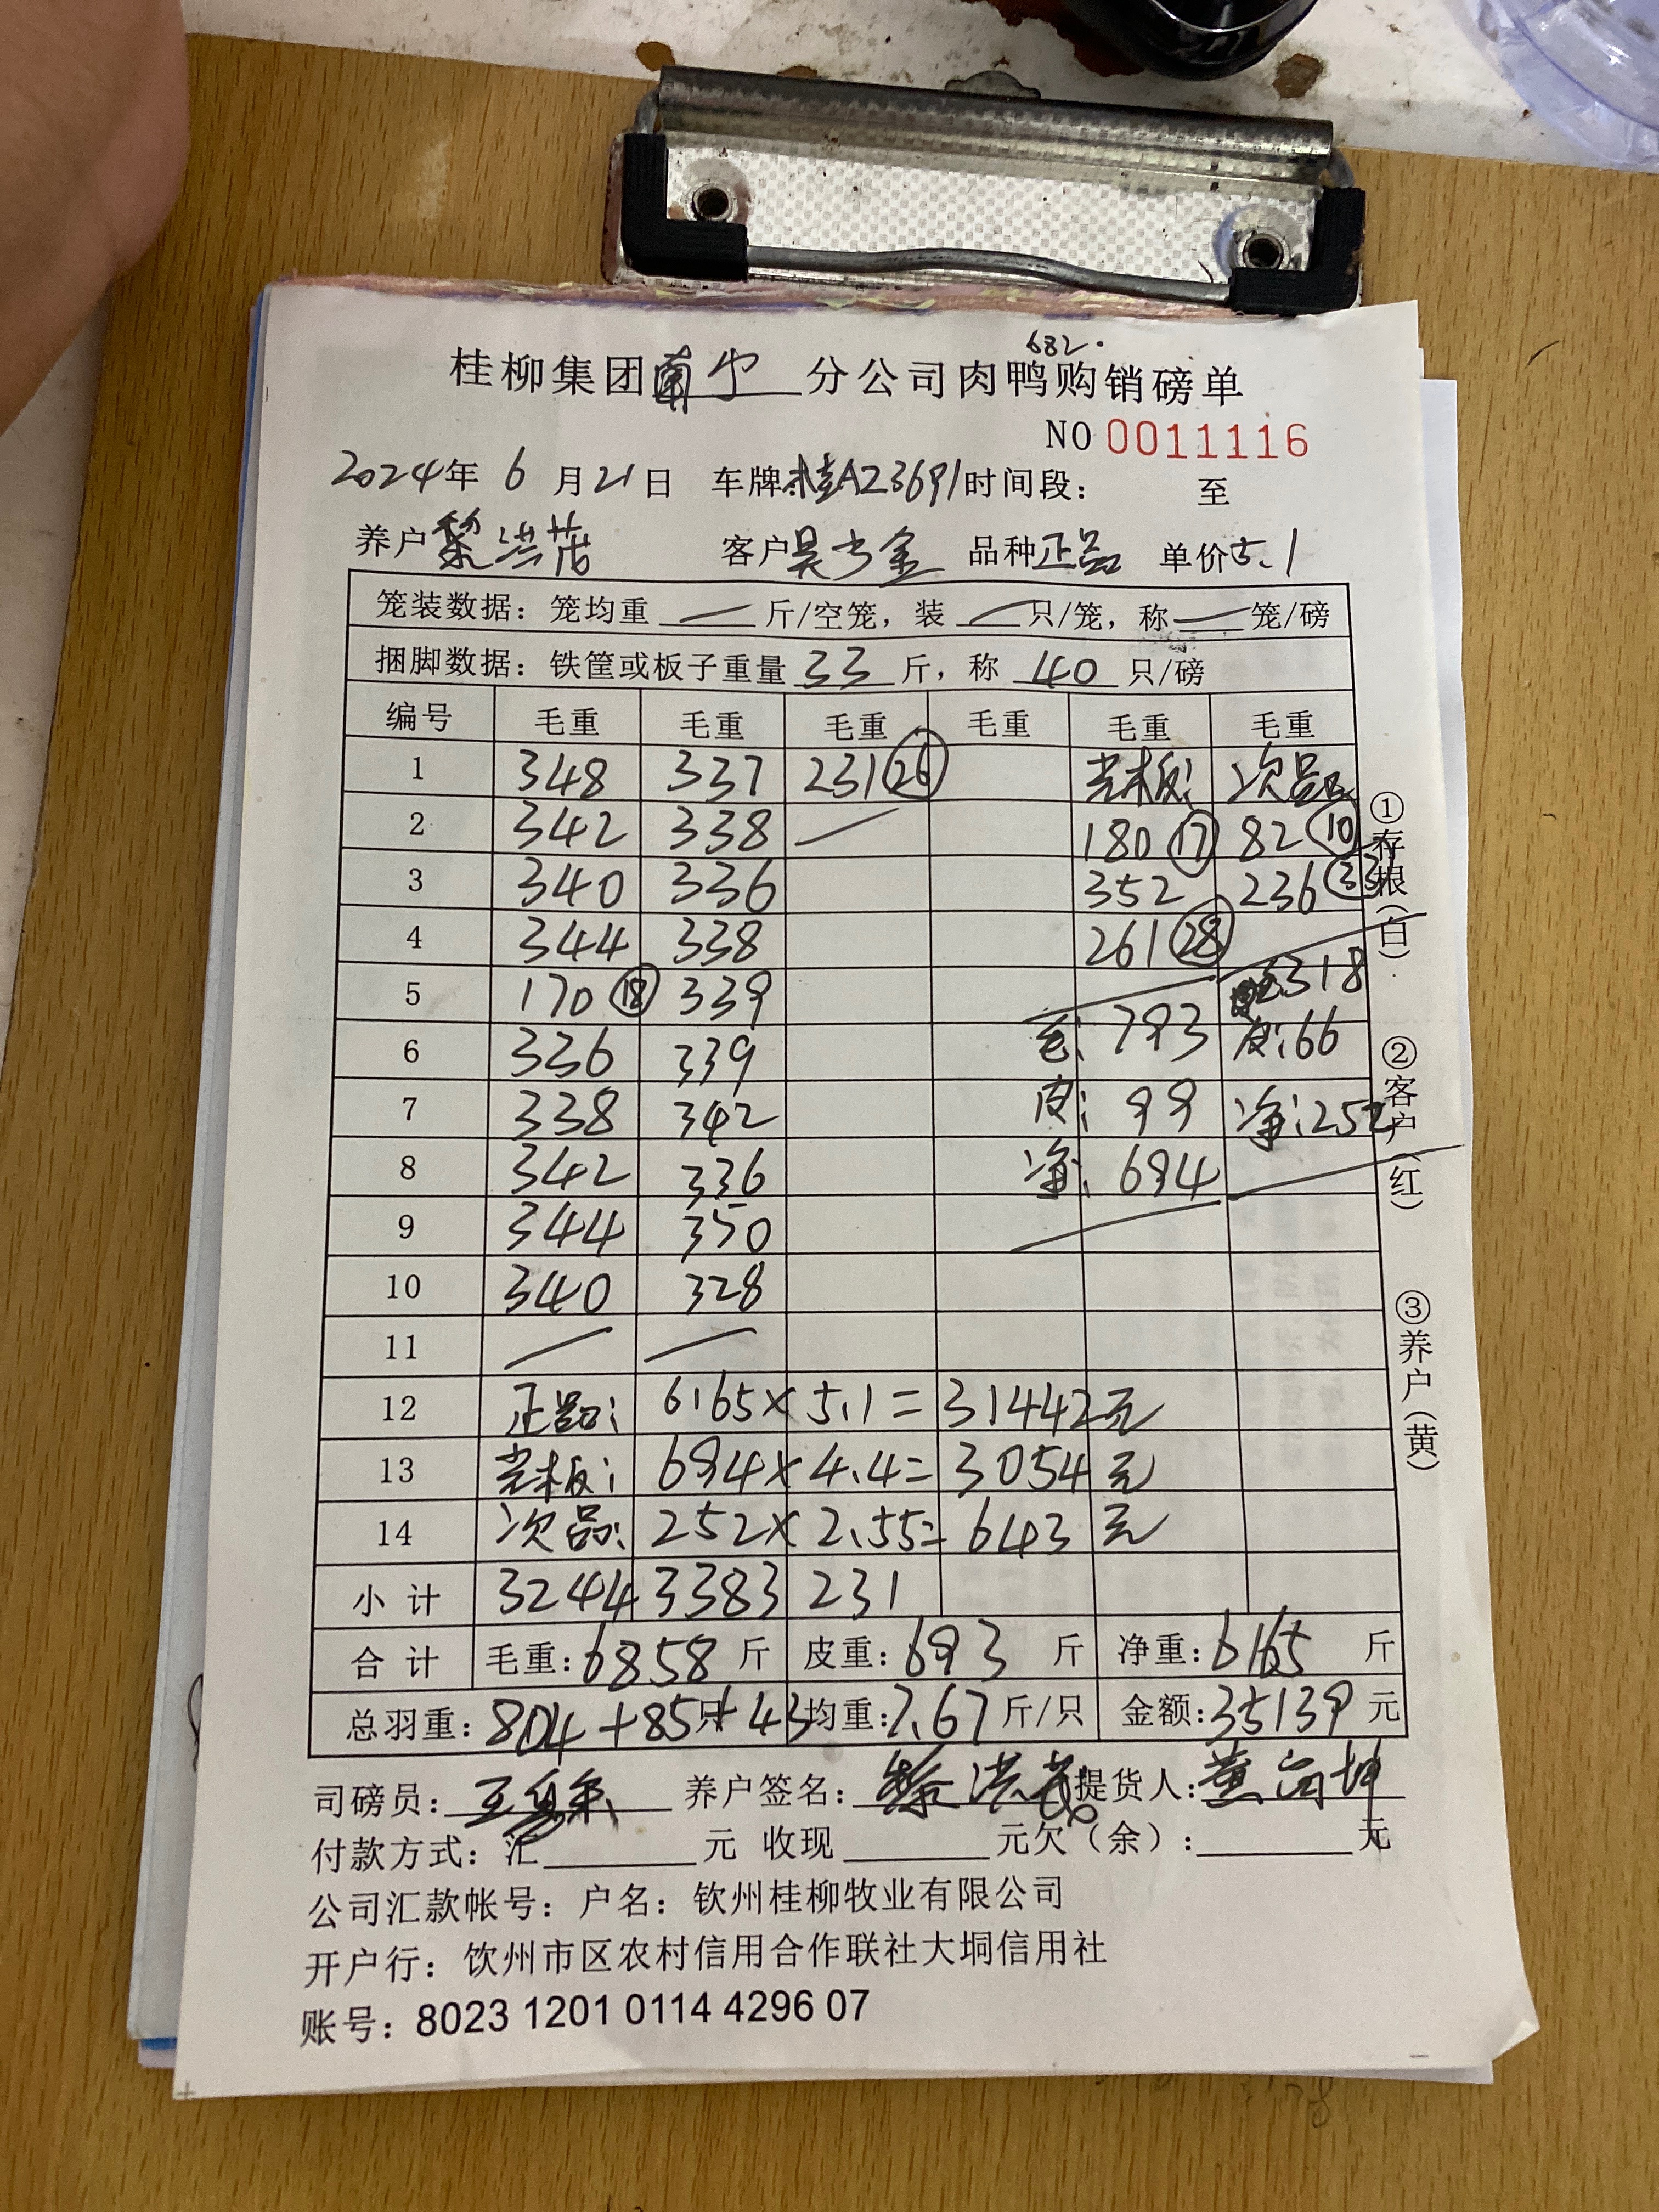 682.
桂柳集团南宁分公司肉鸭购销磅单
NO 0011116
2024年 6 月 21 日 车牌:桂A23691 时间段: 至
养户 黎洪茂 客户 吴少金 品种 正品 单价 5.1
笼装数据：笼均重 — 斤/空笼，装 — 只/笼，称 — 笼/磅
捆脚数据：铁筐或板子重量 33 斤，称 40 只/磅
编号 毛重 毛重 毛重 毛重 毛重 毛重
1 348 337 231 (26) 光板: 次品
2 342 338 — 180 (17) 82 (10)
3 340 336 352 236 (33)
4 344 338 261 (28)
5 170 (18) 339 318
6 336 339 毛: 793 皮: 66
7 338 342 皮: 99 净: 252
8 342 336 净: 694
9 344 350
10 340 328
11 — —
12 正品: 6165 × 5.1 = 31442元
13 光板: 694 × 4.4 = 3054 元
14 次品: 252 × 2.55 = 643 元
小计 3244 3383 231
合计 毛重: 6858 斤 皮重: 693 斤 净重: 6165 斤
总羽重: 804 + 85只 + 43 均重: 7.67 斤/只 金额: 35139 元
司磅员: 养户签名: 提货人:
付款方式：汇 元 收现 元欠（余）： 元
公司汇款帐号：户名：钦州桂柳牧业有限公司
开户行：钦州市区农村信用合作联社大垌信用社
账号：8023 1201 0114 4296 07
①存根（白）
②客户（红）
③养户（黄）